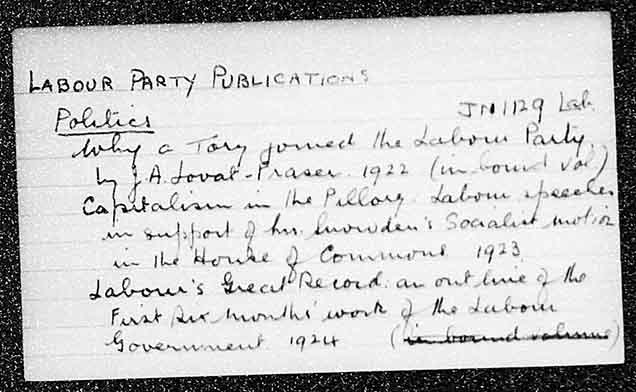 LABOUR PARTY PUBLICATIONS
JN1129 Lab.
Politics
Why a Tory joined the Labour Party.
by J.A. Lovat-Fraser. 1922 (in bound vol)
Capitalism in the Pillory. Labour speeches
in support of Mr. Snowden's Socialist motion
in the House of Commons 1923.
Labour's Great Record: an outline of the
First six months' work of the Labour
Government 1924 (in bound volume)